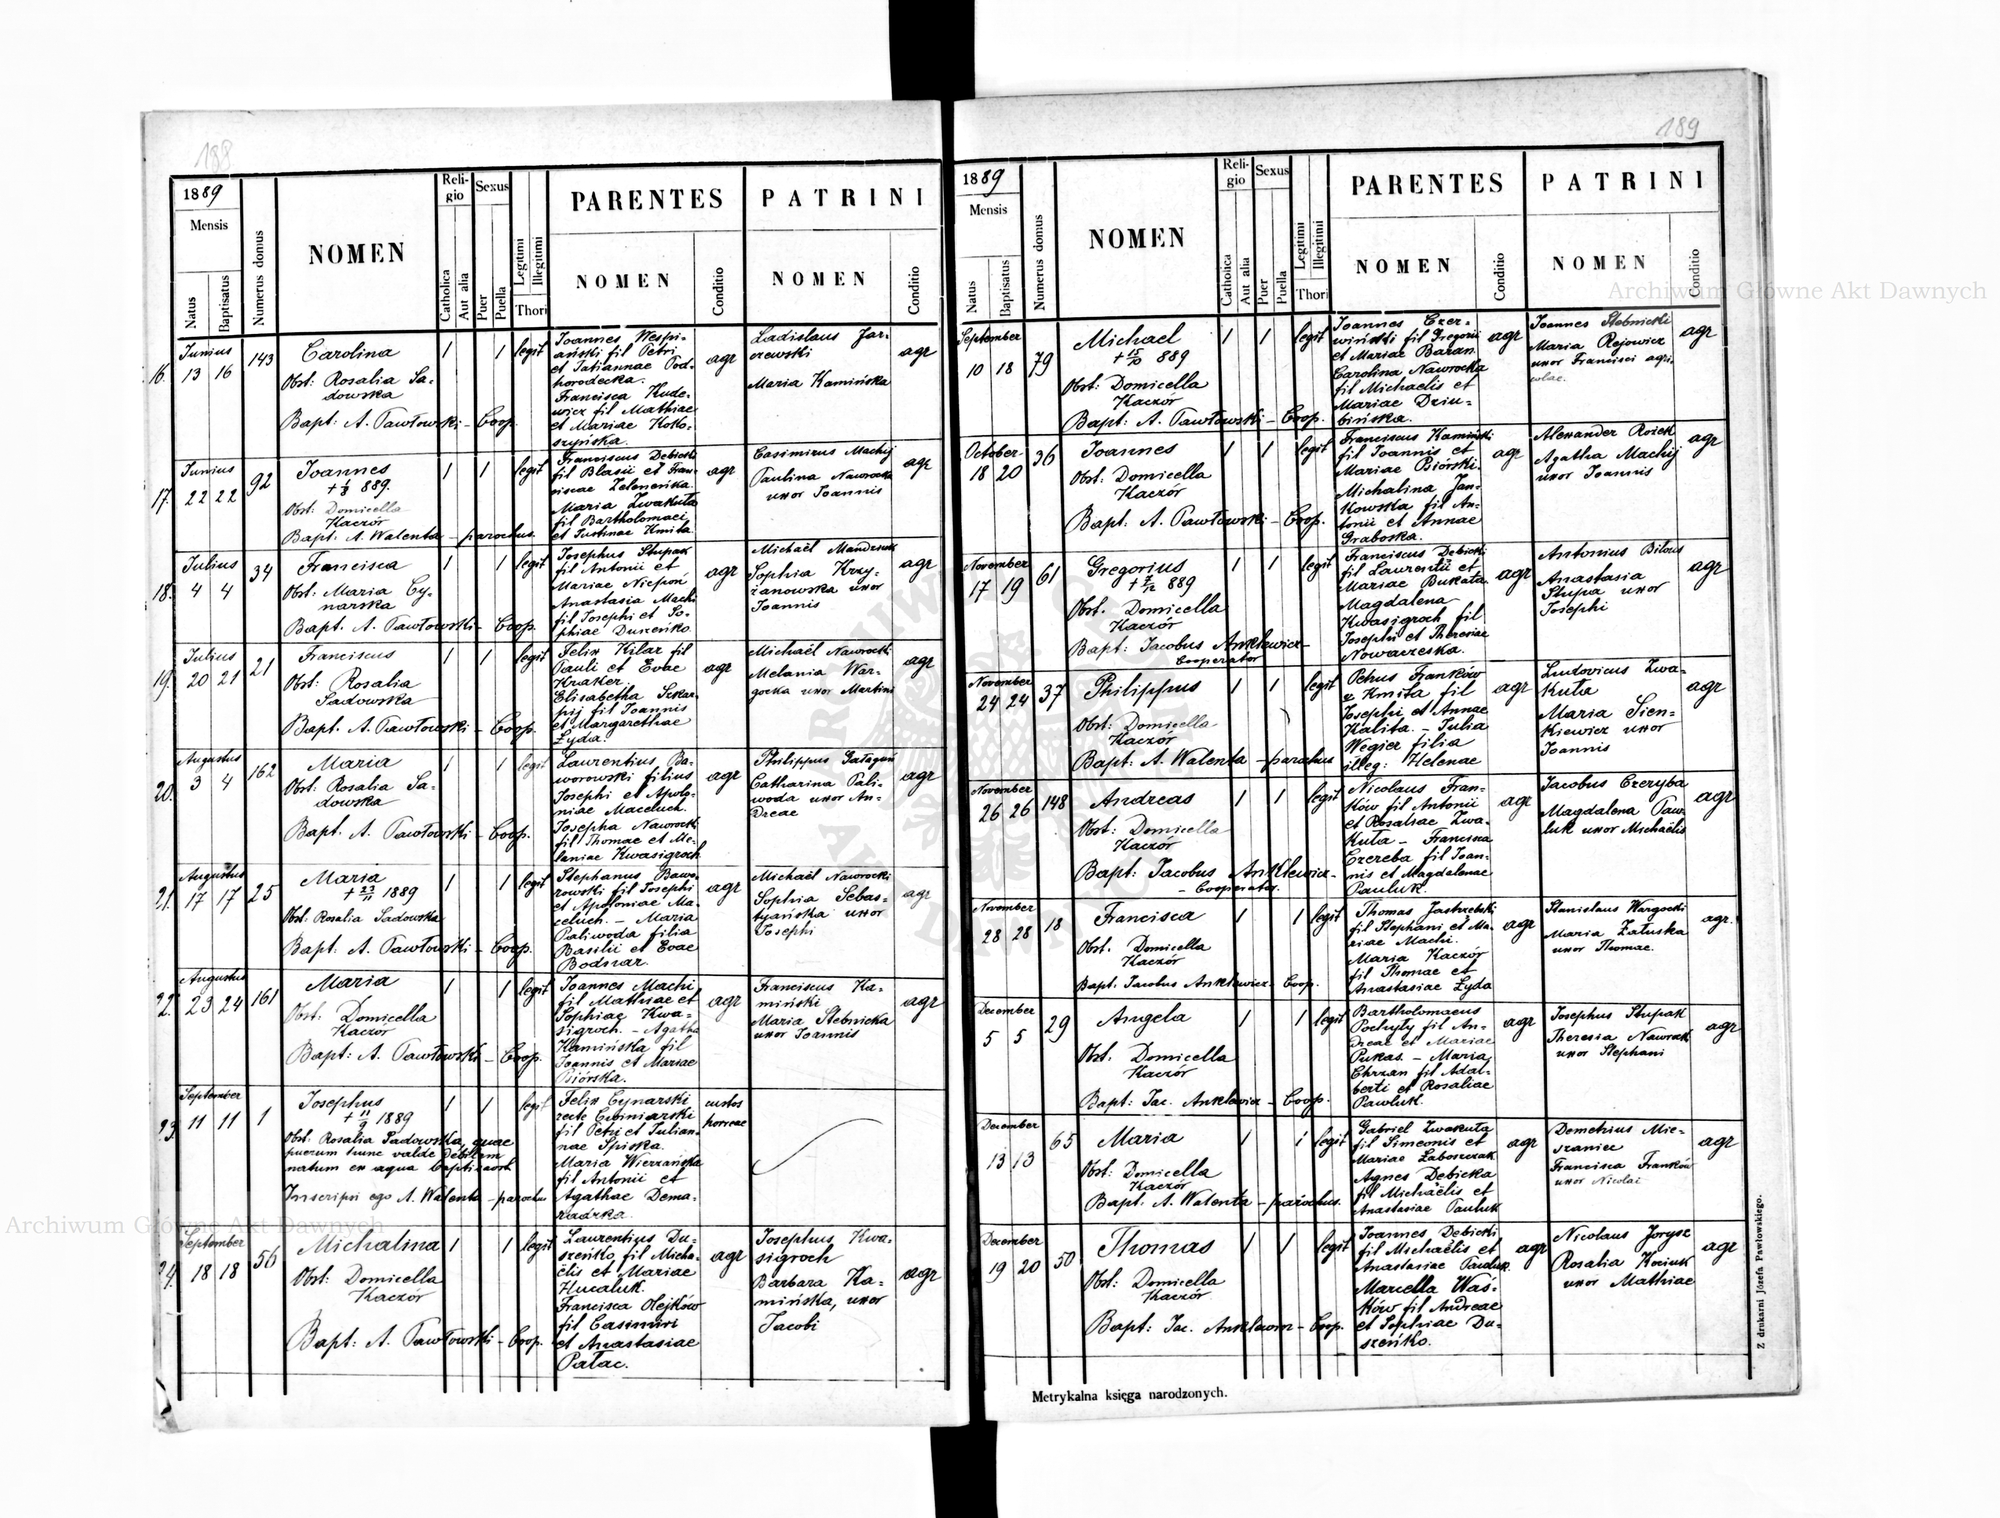 188
1889
Mensis
Natus
Baptisatus
Numerus domus
NOMEN
Reli-
gio
Catholica
Aut alia
Sexus
Puer
Puella
Legitimi
Illegitimi
Thori
PARENTES
NOMEN
Conditio
PATRINI
NOMEN
Conditio
16.
Junius
13 16
143
Carolina
Obst: Rosalia Sa-
dowska
Bapt: A. Pawłowski - Coop.
1
1
legit
Joannes Wespi-
ański fil Petri
et Tatiannae Pod-
horodecka.
Francisca Kude-
wicz fil Mathiae
et Mariae Koko-
szyńska.
agr
Ladislaus Jar-
czewski
Maria Kamińska
agr
17.
Junius
22 22
92
Joannes
+ 1/8 889.
Obst: Domicella
Kaczór
Bapt. A. Walenta - parochus.
1
1
legit
Franciscus Debicki
fil Blasii et Fran-
ciscae Zeleneńka.
Maria Zwakuta
fil Bartholomaei
et Justinae Kmita
agr
Casimirus Machij
Paulina Nawrocka
uxor Joannis
agr
18.
Julius
4 4
34
Francisca
Obst: Maria Cy-
narska
Bapt. A. Pawłowski - Coop.
1
1
legit
Josephus Stupak
fil Antonii et
Mariae Niepoń
Anastasia Machi
fil Josephi et So-
phiae Duszeńko
agr
Michaël Mandziuk
Sophia Krzy-
żanowska uxor
Joannis
agr
19.
Julius
20 21
21
Franciscus
Obst: Rosalia
Sadowska
Bapt. A. Pawłowski - Coop.
1
1
legit
Felix Kilar fil
Pauli et Evae
Kraker.
Elisabetha Szkar-
pij fil Joannis
et Margarethae
Żyda.
agr
Michaël Nawrocki
Melania War-
gocka uxor Martini
agr
20.
Augustus
3 4
162
Maria
Obst: Rosalia Sa-
dowska
Bapt. A. Pawłowski - Coop.
1
1
legit
Laurentius Ba-
worowski filius
Josephi et Apolo-
niae Maceluch.
Josepha Nawrocki
fil Thomae et Me-
laniae Kwasigroch
agr
Philippus Gałagus
Catharina Pali-
woda uxor An-
dreae
agr
21.
Augustus
17 17
25
Maria
+ 23/11 1889
Obst: Rosalia Sadowska
Bapt. A. Pawłowski - Coop.
1
1
legit
Stephanus Bawo-
rowski fil Josephi
et Apoloniae Ma-
celuch. - Maria
Paliwoda filia
Basilii et Evae
Bodnar.
agr
Michaël Nawrocki
Sophia Sebas-
tyańska uxor
Josephi
agr
22.
Augustus
23 24
161
Maria
Obst: Domicella
Kaczór
Bapt: A. Pawłowski - Coop.
1
1
legit
Joannes Machi
fil Mathiae et
Sophiae Kwa-
sigroch. - Agatha
Kamińska fil
Joannis et Mariae
Biórska.
agr
Franciscus Ka-
miński
Maria Stebnicka
uxor Joannis
agr
23.
September
11 11
1
Josephus
+ 11/9 1889
Obst: Rosalia Sadowska, quae
puerum hunc valde debilem
natum ex aqua baptisavit
Inscripsi ego A. Walenta - parochus
1
1
legit
Felix Cynarski
recte Cybiniarski
fil Petri et Julian-
nae Spiska.
Maria Wierzańska
fil Antonii et
Agathae Dema-
radzka.
custos
horreae
24.
September
18 18
56
Michalina
Obst: Domicella
Kaczór
Bapt: A. Pawłowski - Coop.
1
1
legit
Laurentius Du-
szeńko fil Micha-
ëlis et Mariae
Hucaluk.
Francisca Olejków
fil Casimiri
et Anastasiae
Pałac.
agr
Josephus Kwa-
sigroch
Barbara Ka-
mińska, uxor
Jacobi
agr
189
1889
Mensis
Natus
Baptisatus
Numerus domus
NOMEN
Reli-
gio
Catholica
Aut alia
Sexus
Puer
Puella
Legitimi
Illegitimi
Thori
PARENTES
NOMEN
Conditio
PATRINI
NOMEN
Conditio
September
10 18
79
Michael
+ 15/10 889
Obst: Domicella
Kaczór
Bapt: A. Pawłowski - Coop.
1
1
legit
Joannes Czer-
wiński fil Gregorii
et Mariae Baran
Carolina Nawrocka
fil Michaelis et
Mariae Dziu-
bińska.
agr
Joannes Stebnicki
Maria Rejowicz
uxor Francisci agri-
colae.
agr
October
18 20
36
Joannes
Obst: Domicella
Kaczór
Bapt: A. Pawłowski - Coop.
1
1
legit
Franciscus Kamiński
fil Joannis et
Mariae Biórski.
Michalina Jan-
kowska fil An-
tonii et Annae
Graboska.
agr
Alexander Roick
Agatha Machij
uxor Joannis
agr
November
17 19
61
Gregorius
+ 7/12 889
Obst. Domicella
Kaczór
Bapt: Jacobus Anklewicz-
Cooperator
1
1
legit
Franciscus Debicki
fil Laurentii et
Mariae Bukata.
Magdalena
Kwasigroch fil
Josephi et Theresiae
Nowaczeska.
agr
Antonius Bilous
Anastasia
Stupa uxor
Josephi
agr
November
24 24
37
Philippus
Obst: Domicella
Kaczór
Bapt: A. Walenta - parochus
1
1
legit
Petrus Franków
& Kmita fil
Josephi et Annae
Kalita. - Julia
Wegier filia
illeg: Helenae
agr
Ludovicus Zwa-
kuta
Maria Sien-
kiewicz uxor
Joannis
agr
November
26 26
148
Andreas
Obst: Domicella
Kaczór
Bapt: Jacobus Anklewicz-
- Cooperator.
1
1
legit
Nicolaus Fran-
ków fil Antonii
et Rosaliae Zwa-
kuta - Francisca
Czereba fil Joan-
nis et Magdalenae
Pauluk.
agr
Jacobus Czeryba
Magdalena Paw-
luk uxor Michaëlis
agr
November
28 28
18
Francisca
Obst. Domicella
Kaczór
Bapt. Jacobus Anklewicz - Coop.
1
1
legit
Thomas Jastrzebski
fil Stephani et Ma-
riae Machi.
Maria Kaczór
fil Thomae et
Anastasiae Żyda
agr
Stanislaus Wargocki
Maria Załuska
uxor Thomae.
agr.
December
5 5
29
Angela
Obst: Domicella
Kaczór
Bapt: Jac. Anklewicz - Coop.
1
1
legit
Bartholomaeus
Pochyły fil An-
dreae et Mariae
Pukas. - Maria
Chrzan fil Adal-
berti et Rosaliae
Pawluk.
agr
Josephus Stupak
Theresia Nawrock
uxor Stephani
agr
December
13 13
65
Maria
Obst: Domicella
Kaczór
Bapt: A. Walenta - parochus.
1
1
legit
Gabriel Zwakuta
fil Simeonis et
Mariae Laboszczak
Agnes Debicka
fil Michaëlis et
Anastasiae Pauluk
agr
Demetrius Mie-
szaniec
Francisca Franków
uxor Nicolai
agr
December
19 20
50
Thomas
Obst: Domicella
Kaczór
Bapt: Jac. Anklewicz - Coop.
1
1
legit
Joannes Debicki
fil Michaëlis et
Anastasiae Pauluk.
Marcella Waś-
ków fil Andreae
et Sophiae Du-
szeńko.
agr
Nicolaus Jorysz
Rosalia Kociuk
uxor Mathiae
agr
Metrykalna księga narodzonych.
Z drukarni Józefa Pawłowskiego.
Archiwum Główne Akt Dawnych
Archiwum Główne Akt Dawnych